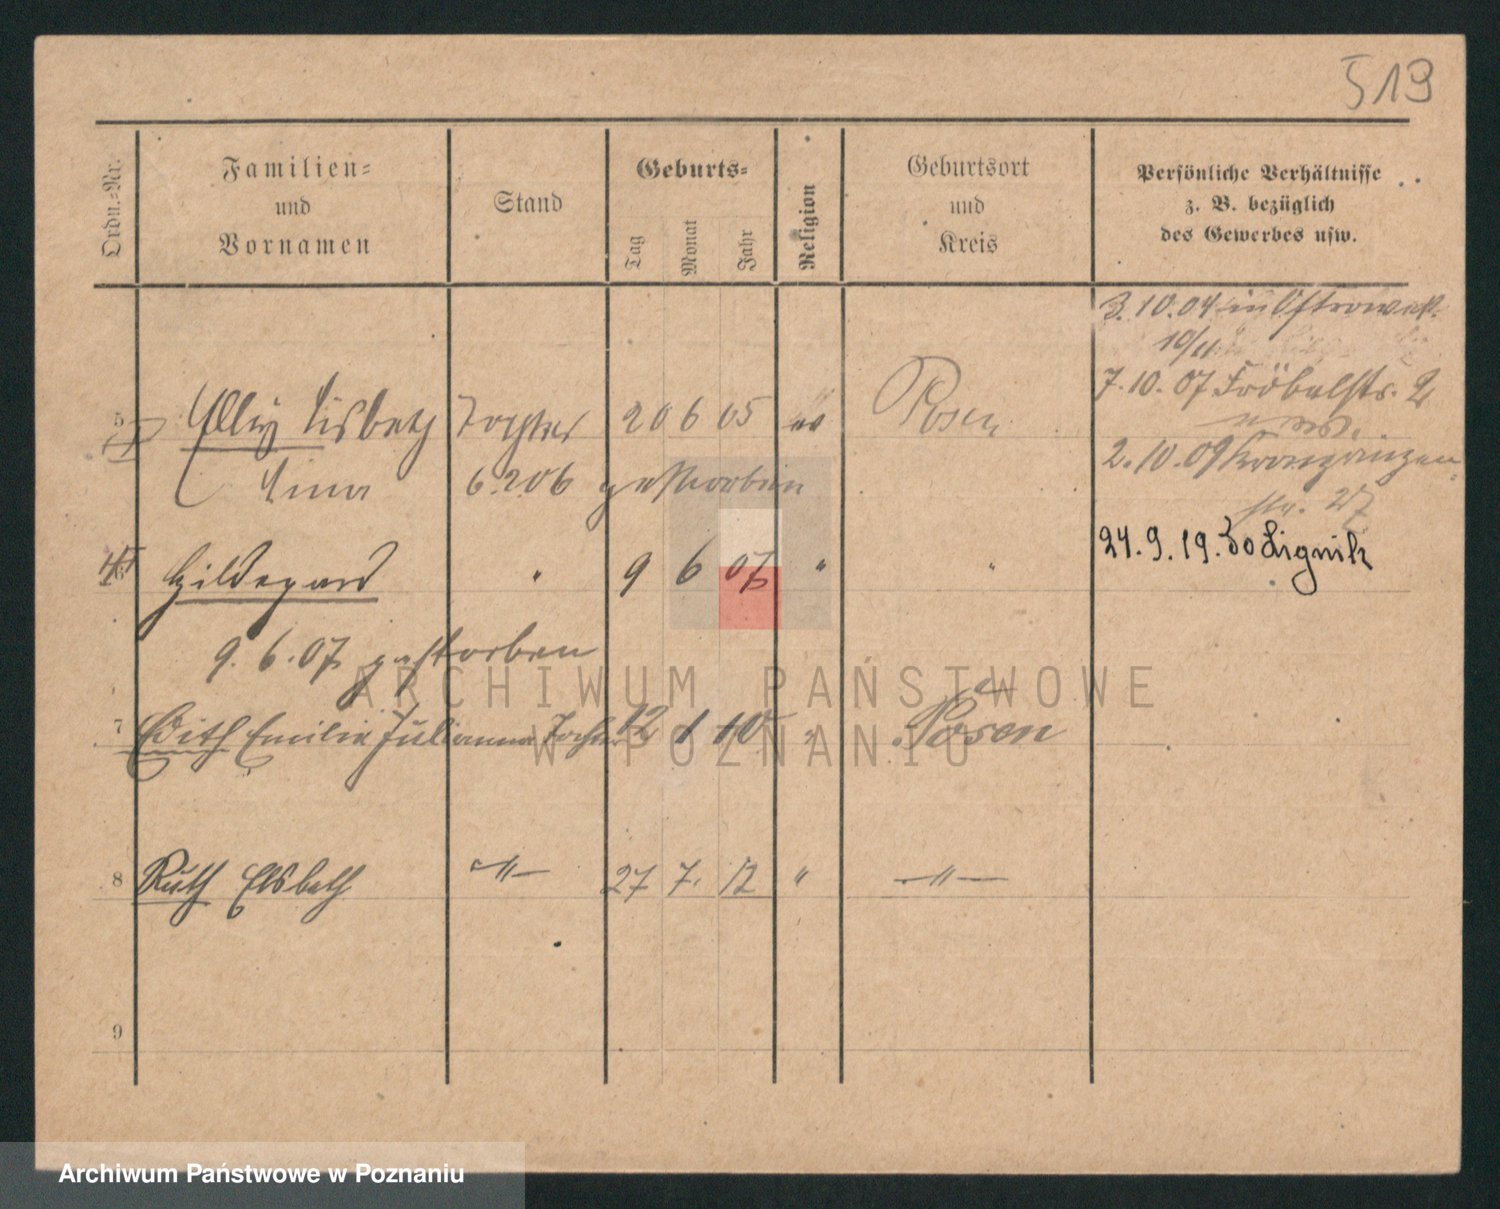 519
Ordn.=Nr.
Familien=
und
Vornamen
Stand
Geburts=
Tag
Monat
Jahr
Religion
Geburtsort
und
Kreis
Persönliche Verhältnisse
z. B. bezüglich
des Gewerbes usw.
3. 10. 04 in
10/11
7. 10. 07 Fröbelstr. 2
5 Elly Lisbeth Tochter 20 6 05 ev Posen
2. 10. 09 Kronprinzen
str. 27
6.2.06 gestorben
24. 9. 19. Lignik
6 Hildegard " 9 6 07 " "
9. 6. 07 gestorben
7 Edith Emilie Julianna Tochter 12 1 10 " Posen
8 Ruth Elsbeth —"— 27 7. 12 " —"—
9
ARCHIWUM PAŃSTWOWE
W POZNANIU
Archiwum Państwowe w Poznaniu